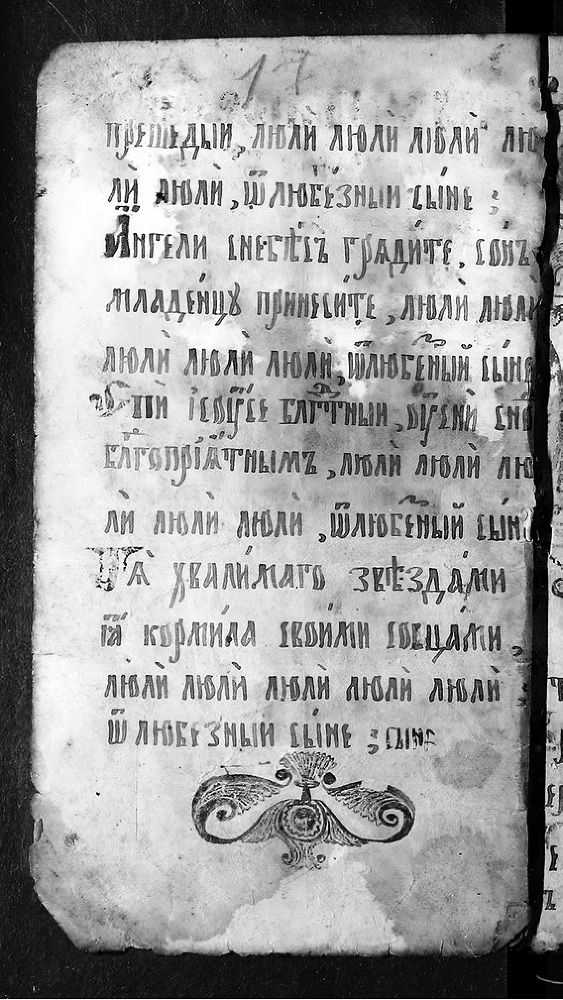 17
прешедый, люли̇̀ люли люлѝ лю
лѝ люлѝ, ѿлюбе́зный сы́не ;
А҆́нгели снебе́съ гряди́те, со́нъ
младе́нцꙋ принеси́те, люлѝ люли
люлѝ люлѝ люлѝ, ѿлюбе́ный сы́не
Спѝ і҆сꙋ́се блг҃тный, ᲂу҆снѝ сно
бл҃гопрїѧ́тнымъ, люлѝ люлѝ лю
лѝ люлѝ люлѝ, ѿлюбе́ный сын
Тѧ̀ хвали́маго звѣзда́ми
кормила свои́ми сосца́ми,
люлѝ люлѝ люлѝ люлѝ люлѝ
ѿлюбезный сы́не ; сыне